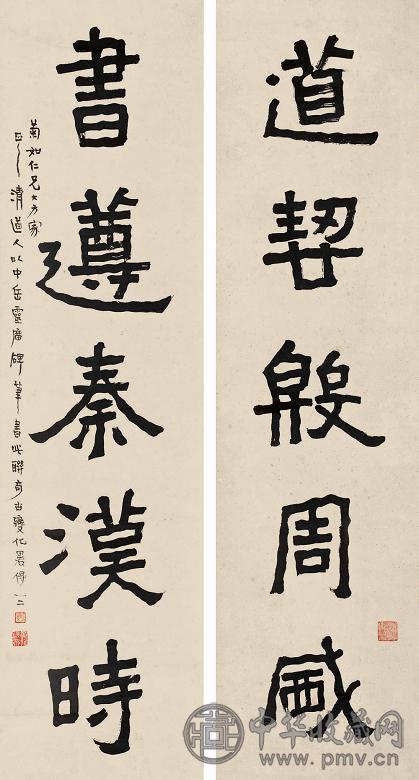 道契殷周
書遵秦漢時
如仁兄大方家
正之 清道人以中岳靈廟碑筆書此聯奇古變化畧得一二
中华收藏网
www.pmv.cn